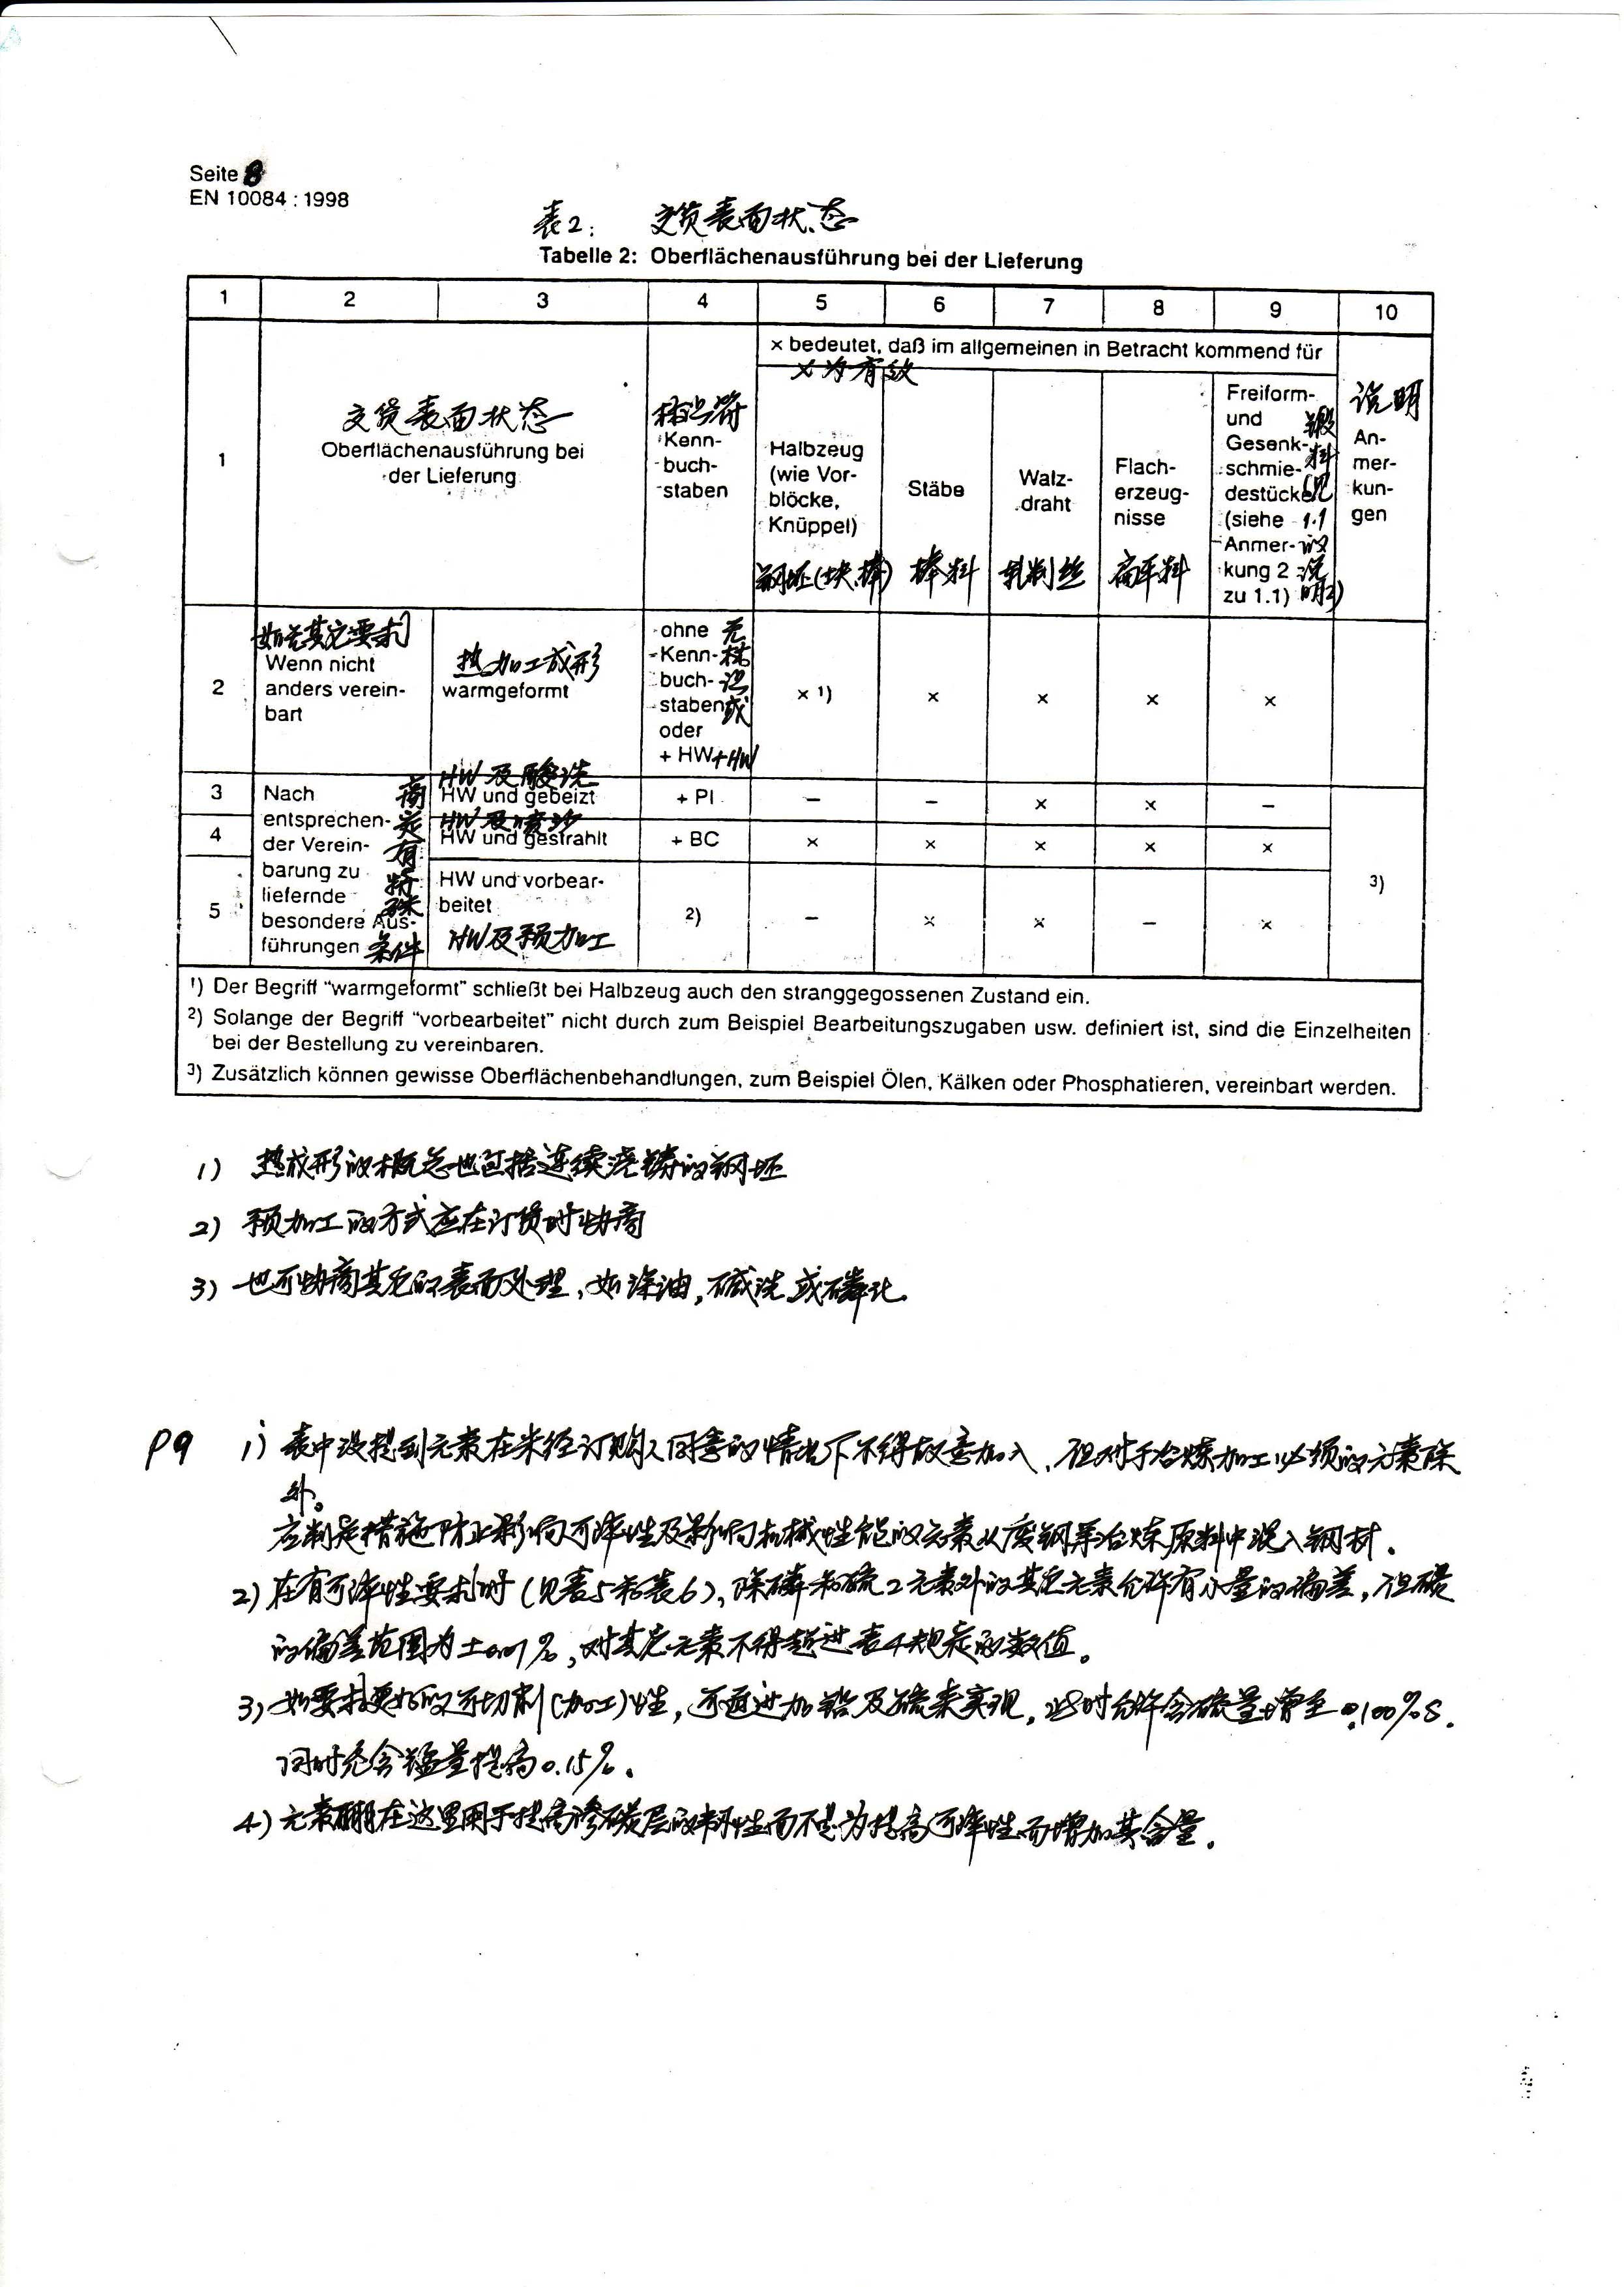 Seite 8
EN 10084 : 1998
表2: 交货表面状态
Tabelle 2: Oberflächenausführung bei der Lieferung
1 2 3 4 5 6 7 8 9 10
× bedeutet, daß im allgemeinen in Betracht kommend für
×为有效
1
交货表面状态
Oberflächenausführung bei
der Lieferung
标识符
Kenn-
buch-
staben
Halbzeug
(wie Vor-
blöcke,
Knüppel)
钢坯(块,棒)
Stäbe
棒料
Walz-
draht
轧制丝
Flach-
erzeug-
nisse
扁平料
Freiform-
und
Gesenk-
schmie-
destücke
(siehe
Anmer-
kung 2
zu 1.1)
锻料(见1.1的说明2)
说明
An-
mer-
kun-
gen
2
如无其它要求
Wenn nicht
anders verein-
bart
热加工成形
warmgeformt
ohne
Kenn-
buch-
staben
oder
+ HW
无标识或+HW
× 1) × × × ×
Nach
entsprechen-
der Verein-
barung zu
liefernde
besondere Aus-
führungen
商定有特殊条件
3
HW及酸洗
HW und gebeizt + PI – – × × –
4
HW及喷沙
HW und gestrahlt + BC × × × × ×
5
HW und vorbear-
beitet
HW及预加工
2) – × × – ×
3)
1) Der Begriff “warmgeformt” schließt bei Halbzeug auch den stranggegossenen Zustand ein.
2) Solange der Begriff “vorbearbeitet” nicht durch zum Beispiel Bearbeitungszugaben usw. definiert ist, sind die Einzelheiten
bei der Bestellung zu vereinbaren.
3) Zusätzlich können gewisse Oberflächenbehandlungen, zum Beispiel Ölen, Kälken oder Phosphatieren, vereinbart werden.
1) 热成形的概念也包括连续浇铸的钢坯
2) 预加工的方式应在订货时协商
3) 也可协商其它的表面处理,如涂油,碱洗或磷化.
P9 1) 表中没提到元素在未经订购人同意的情况下不得故意加入,但对于冶炼加工必须的元素除
外。
应制定措施防止影响可淬性及影响机械性能的元素从废钢等冶炼原料中混入钢材.
2) 在有可淬性要求时(见表5和表6),除磷和硫2元素外的其它元素允许有小量的偏差,但碳
的偏差范围为±0.01%,对其它元素不得超过表4规定的数值。
3) 如要求更好的可切削(加工)性,可通过加铅及硫来实现,此时允许含硫量增至0.100%S.
同时允含锰量提高0.15%.
4) 元素硼在这里用于提高渗碳层的韧性而不是为提高可淬性而增加其含量.